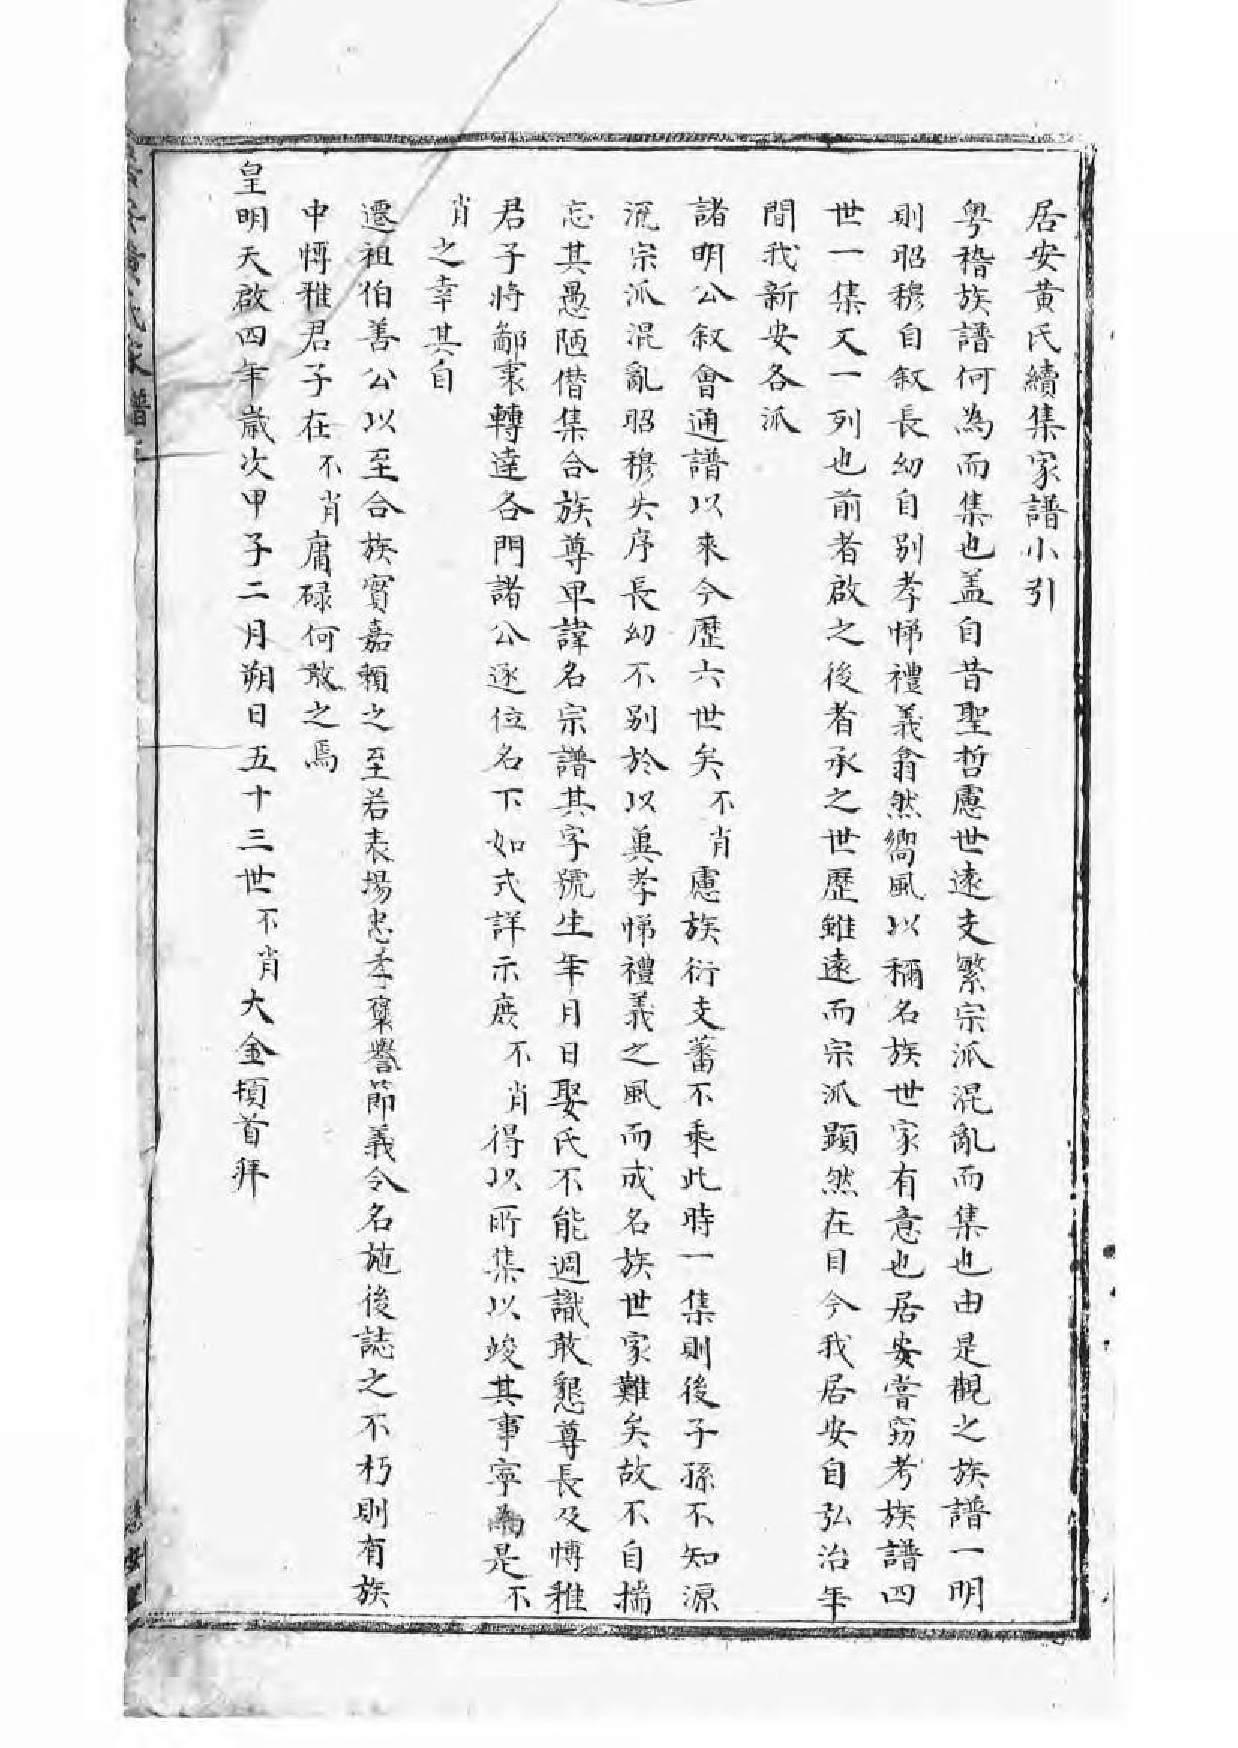 居安黃氏續集家譜小引
粤稽族譜何為而集也盖自昔聖哲慮世遠支繁宗派混亂而集也由是觀之族譜一明
則昭穆自叙長幼自别孝悌禮義翕然嚮風以稱名族世家有意也居安嘗竊考族譜四
世一集又一列也前者啟之後者承之世歷雖遠而宗派顯然在目今我居安自弘治年
間我新安各派
諸明公叙會通譜以來今歷六世矣不肖慮族衍支蕃不乘此時一集則後子孫不知源
流宗派混亂昭穆失序長幼不别於以冀孝悌禮義之風而成名族世家難矣故不自揣
忘其愚陋僭集合族尊卑諱名宗譜其字號生年月日娶氏不能週識敢懇尊長及博雅
君子將鄙衷轉達各門諸公逐位名下如式詳示庶不肖得以所集以竣其事寧是不
肖之幸其自
遷祖伯善公以至合族實嘉賴之至若表揚忠孝褒譽節義令名施後誌之不朽則有族
中博雅君子在不肖庸碌何敢之焉
皇明天啟四年歲次甲子二月朔日五十三世不肖大金頓首拜
黃氏家譜